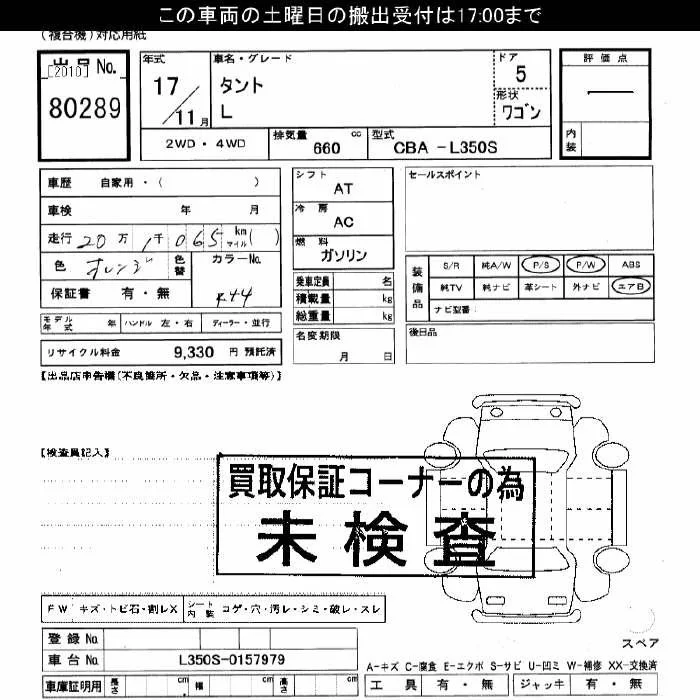 この車両の土曜日の搬出受付は17:00まで
(複合機)対応用紙
出品 No.
[2010]
80289
年式
17/11月
車名・グレード
タント
L
ドア
5
形状
ワゴン
評価点
―
内装
2WD・4WD
排気量 660 cc
型式 CBA -L350S
車歴 自家用・( )
車検 年 月
走行 20万1千065 km マイル( )
色 オレンジ
色替
カラーNo.
R44
保証書 有・無
シフト
AT
冷房
AC
燃料
ガソリン
乗車定員 名
積載量 kg
総重量 kg
セールスポイント
装備品
S/R 純A/W P/S P/W ABS
純TV 純ナビ 革シート 外ナビ エアB
ナビ型番
モデル年式 年 ハンドル 左・右 ディーラー・並行
名変期限
月 日
後日品
リサイクル料金 9,330 円 預託済
【出品店申告欄(不良箇所・欠品・注意事項等)】
【検査員記入】
買取保証コーナーの為
未検査
FW キズ・トビ石・割レX シート内装 コゲ・穴・汚レ・シミ・破レ・スレ
登録 No.
車台 No. L350S-0157979
車庫証明用 長さ cm 幅 cm 高さ cm
スペア
A-キズ C-腐食 E-エクボ S-サビ U-凹ミ W-補修 XX-交換済
工具 有・無 ジャッキ 有・無